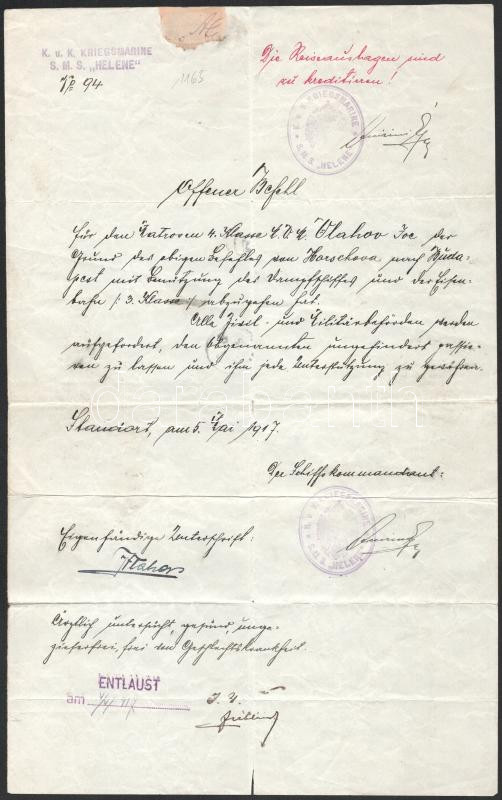 K. u. K. KRIEGSMARINE
S. M. S. „HELENE"
№ 94
1165
Die Reiseauslagen sind
zu kreditieren!
K. u. K. KRIEGSMARINE
S. M. S. „HELENE"
Offener Befehl
für den Matrosen 4. Klasse Vlahov Ive der
Grund des obigen Befehles von Horschova nach Buda-
pest mit Benützung des Dampfschiffes und der Eisen-
bahn /: 3. Klasse :/ abzugehen hat.
Alle Zivil- und Militärbehörden werden
aufgefordert, den Obgenannten ungehindert passie-
ren zu lassen und ihm jede Unterstützung zu gewähren.
Standort, am 5. Mai 1917.
Der Schiffskommandant:
K. u. K. KRIEGSMARINE
S. M. S. „HELENE"
Eigenhändige Unterschrift:
Vlahov
Ärztlich untersucht, gesund, unge-
zieferfrei, frei von Geschlechtskrankheit.
ENTLAUST
am